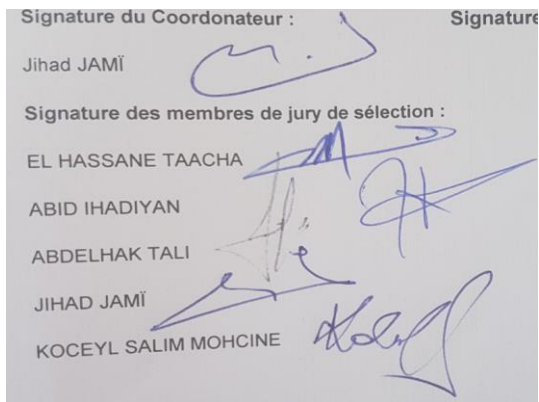 Signature du Coordonateur : Signature
Jihad JAMÏ
Signature des membres de jury de sélection :
EL HASSANE TAACHA
ABID IHADIYAN
ABDELHAK TALI
JIHAD JAMÏ
KOCEYL SALIM MOHCINE